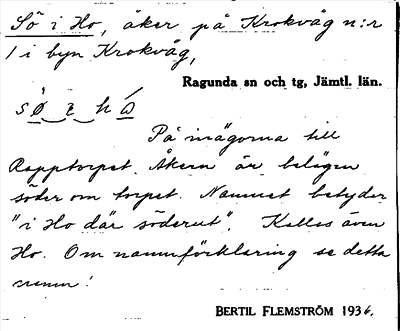 Sö i Ho, åker på Krokvåg n:r
1 i byn Krokvåg,
Ragunda sn och tg, Jämtl. län.
På inägorna till
Rapptorpet. Åkern är belägen
söder om torpet. Namnet betyder
"i Ho där söderut". Kallas även
Ho. Om namnförklaring se detta
namn!
BERTIL FLEMSTRÖM 1936.